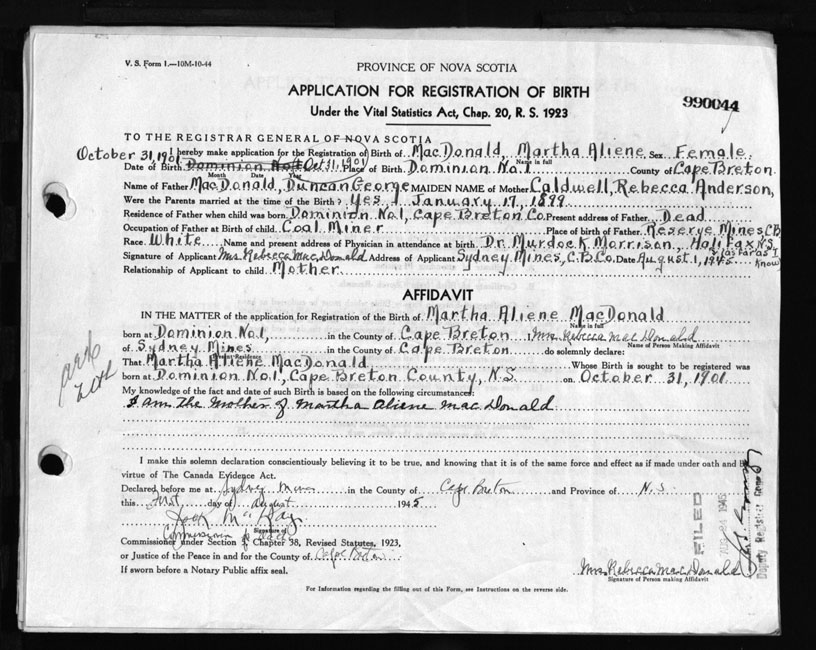 V. S. Form 1.—10M-10-44
PROVINCE OF NOVA SCOTIA
APPLICATION FOR REGISTRATION OF BIRTH
990044
Under the Vital Statistics Act, Chap. 20, R. S. 1923
TO THE REGISTRAR GENERAL OF NOVA SCOTIA
I hereby make application for the Registration of Birth of MacDonald, Martha Aliene Sex Female.
Name in full
October 31, 1901
Date of Birth Dominion No 1 Oct 31, 1901 Place of Birth Dominion No. 1 County of Cape Breton.
Month Date Year
Name of Father MacDonald, Duncan George MAIDEN NAME of Mother Caldwell, Rebecca Anderson,
Were the Parents married at the time of the Birth? Yes, January 17, 1899
Residence of Father when child was born Dominion No 1, Cape Breton Co. Present address of Father Dead
Occupation of Father at Birth of child Coal Miner Place of Birth of Father Reserve Mines, C.B
Race White Name and present address of Physician in attendance at birth Dr. Murdock Morrison, Halifax N.S.
as far as I know
Signature of Applicant Mrs Rebecca Mac Donald Address of Applicant Sydney Mines, C.B.Co. Date August 1, 1945
Relationship of Applicant to child Mother
AFFIDAVIT
IN THE MATTER of the application for Registration of the Birth of Martha Aliene MacDonald
Name in full
born at Dominion No. 1, in the County of Cape Breton I, Mrs. Rebecca Mac Donald
Name of Person Making Affidavit
of Sydney Mines in the County of Cape Breton do solemnly declare:
Present Residence
That Martha Aliene MacDonald Whose Birth is sought to be registered was
born at Dominion No. 1, Cape Breton County, N.S. on October 31, 1901
My knowledge of the fact and date of such Birth is based on the following circumstances:
I am the Mother of Martha Aliene Mac Donald
I make this solemn declaration conscientiously believing it to be true, and knowing that it is of the same force and effect as if made under oath and by
virtue of The Canada Evidence Act.
Declared before me at Sydney Mines in the County of Cape Breton and Province of N.S
this First day of August 1945
Signature of
Commissioner under Section Chapter 38, Revised Statutes, 1923,
or Justice of the Peace in and for the County of Cape Breton
If sworn before a Notary Public affix seal.
Mrs Rebecca Mac Donald
Signature of Person making Affidavit
FILED
1945
Deputy Registrar General
For Information regarding the filling out of this Form, see Instructions on the reverse side.